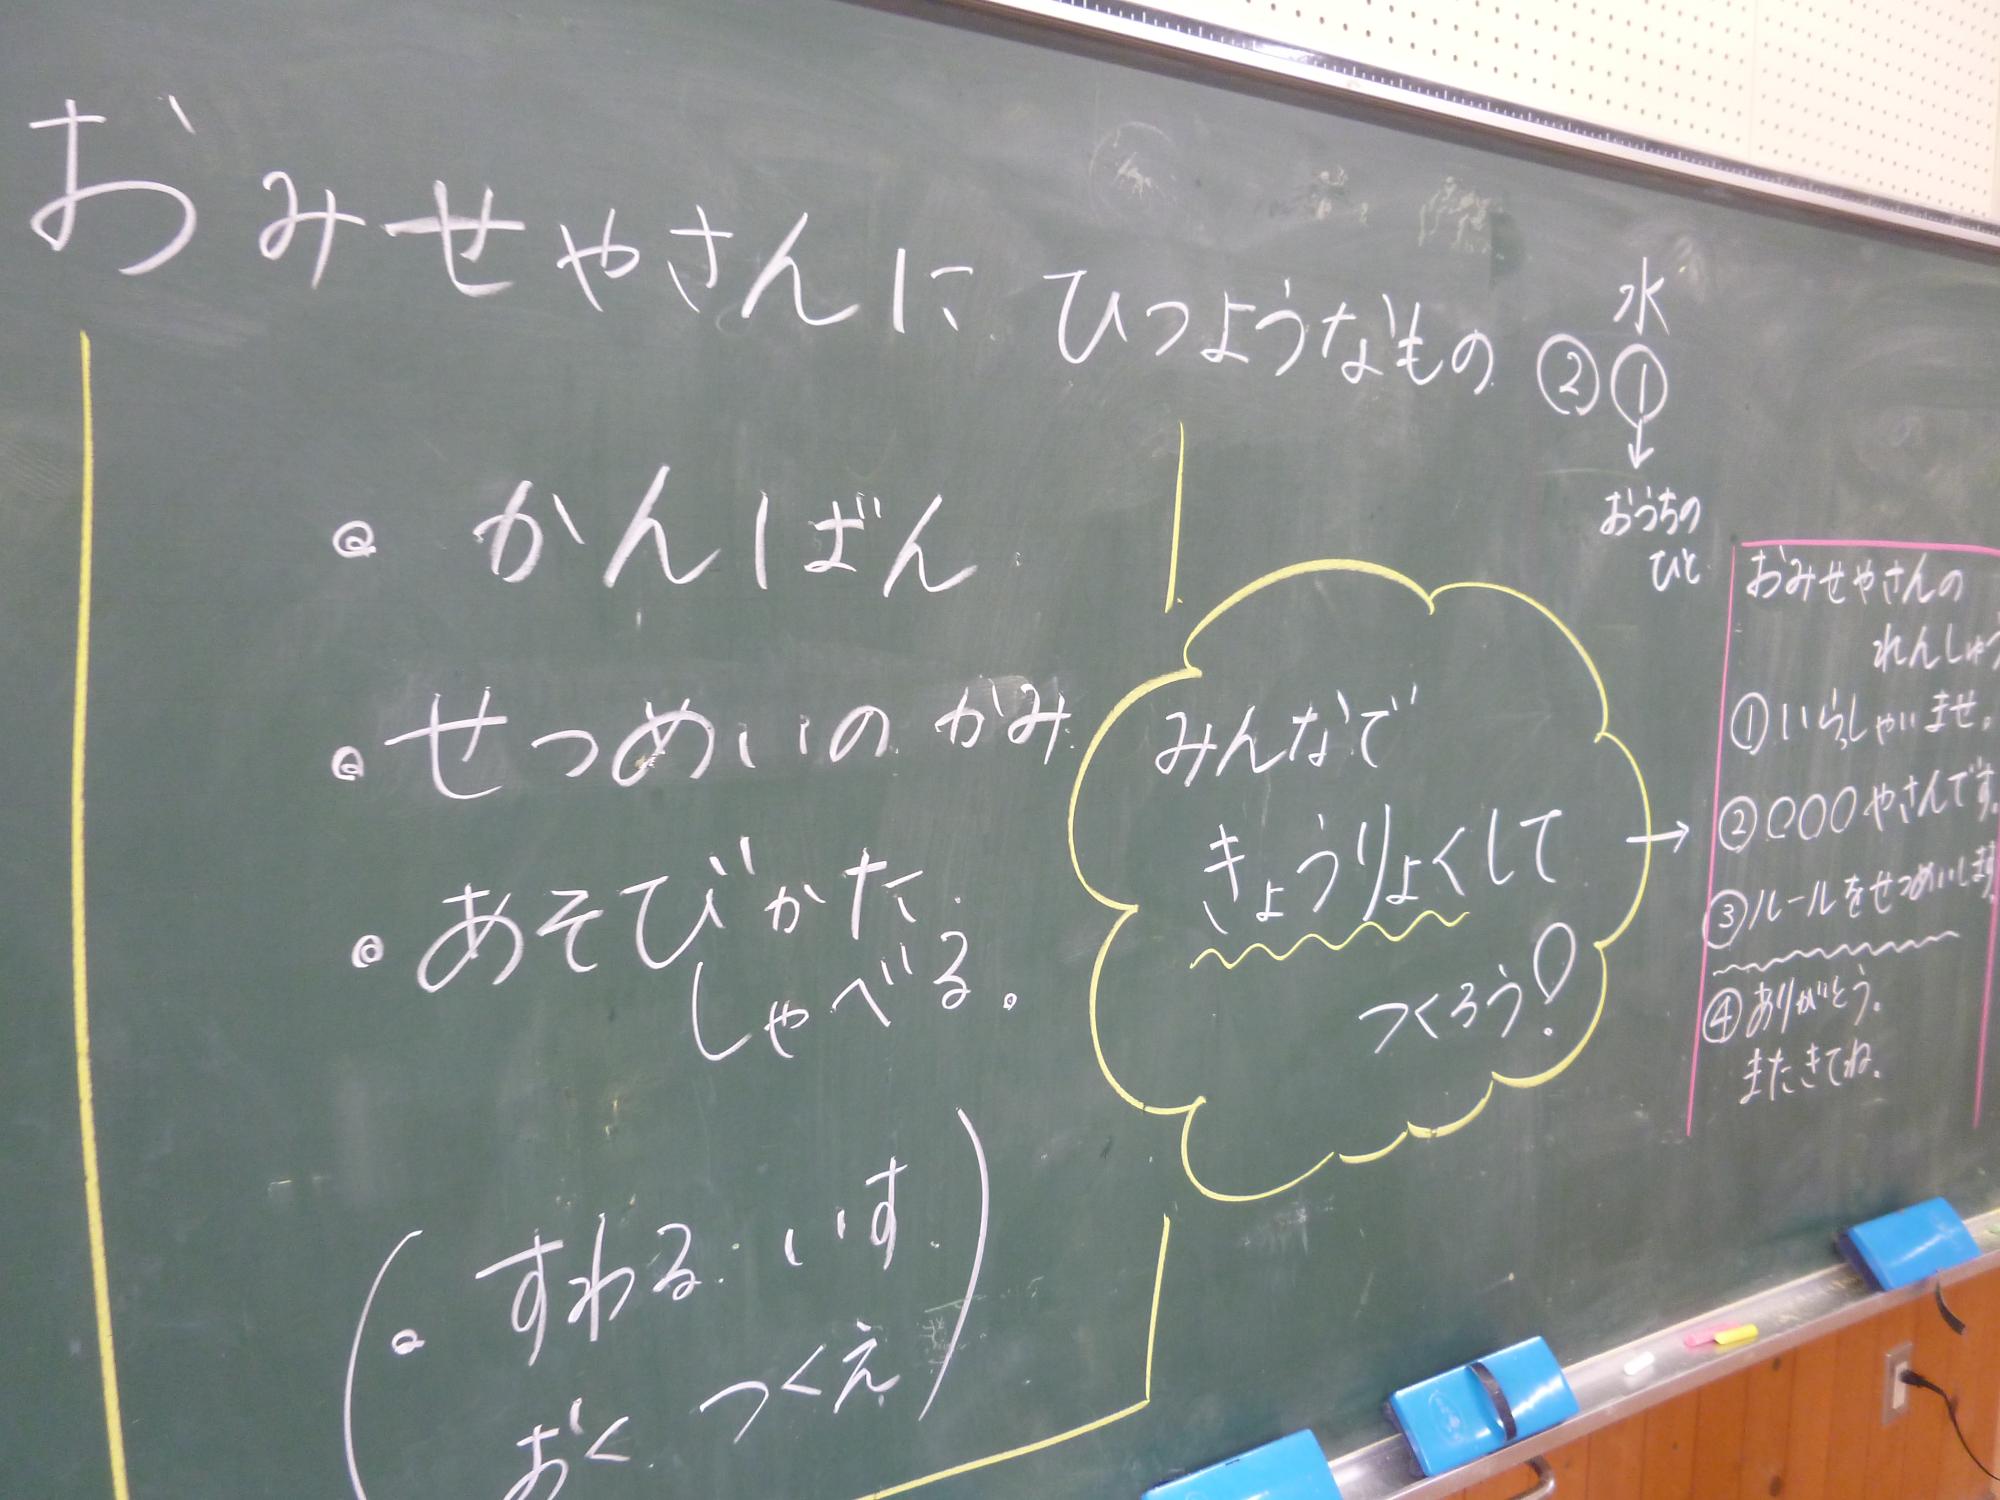 おみせやさんに ひつようなもの
水
② ①
↓
おうちの
ひと
・かんばん
・せつめいのかみ
・あそびかた
しゃべる。
(・すわる いす
おく つくえ)
みんなで
きょうりょくして
つくろう!
→
おみせやさんの
れんしゅう
①いらっしゃいませ。
②○○○やさんです。
③ルールをせつめいします。
④ありがとう。
またきてね。